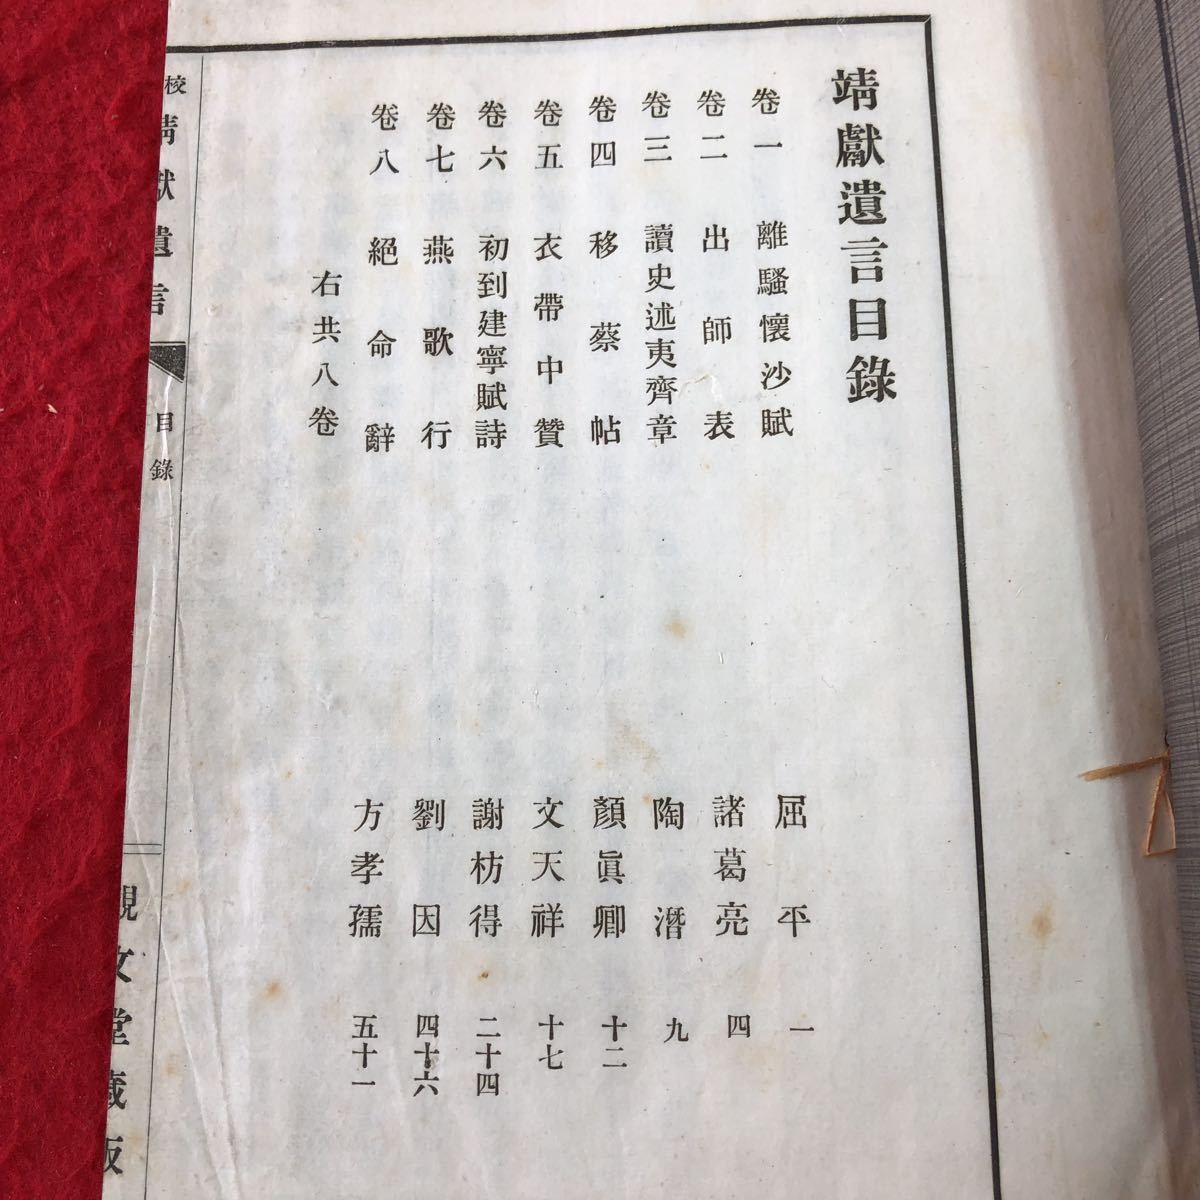 靖獻遺言目錄
卷一 離騷懷沙賦 屈平 一
卷二 出師表 諸葛亮 四
卷三 讀史述夷齊章 陶潛 九
卷四 移蔡帖 顏眞卿 十二
卷五 衣帶中贊 文天祥 十七
卷六 初到建寧賦詩 謝枋得 二十四
卷七 燕歌行 劉因 四十六
卷八 絕命辭 方孝孺 五十一
右共八卷
校 靖獻遺言 目錄 觀文堂藏版